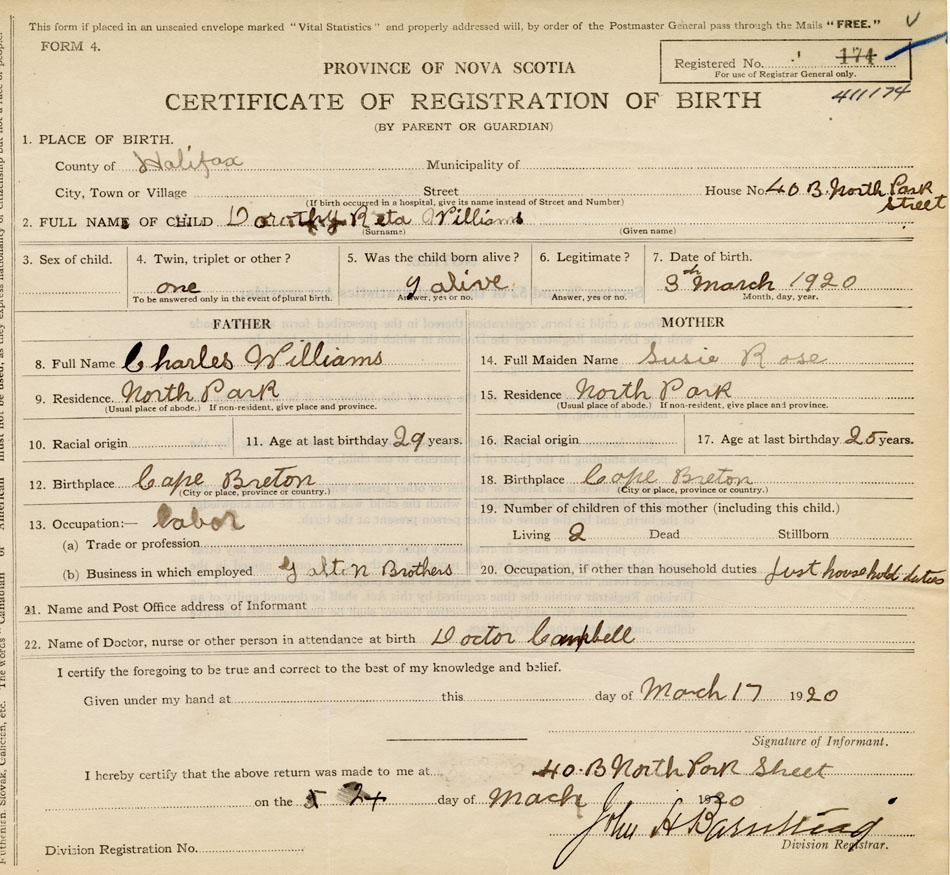 This form if placed in an unsealed envelope marked "Vital Statistics" and properly addressed will, by order of the Postmaster General pass through the Mails "FREE."
FORM 4.
Registered No. 174
For use of Registrar General only.
411174
PROVINCE OF NOVA SCOTIA
CERTIFICATE OF REGISTRATION OF BIRTH
(BY PARENT OR GUARDIAN)
1. PLACE OF BIRTH.
County of Halifax Municipality of
City, Town or Village Street House No. 40 B. North Park Street
(If birth occurred in a hospital, give its name instead of Street and Number)
2. FULL NAME OF CHILD Dorothy Reta Williams
(Surname) (Given name)
3. Sex of child. 4. Twin, triplet or other? 5. Was the child born alive? 6. Legitimate? 7. Date of birth.
one y alive. 3th March 1920
To be answered only in the event of plural birth. Answer, yes or no. Answer, yes or no. Month, day, year.
FATHER
8. Full Name Charles Williams
9. Residence North Park
(Usual place of abode.) If non-resident, give place and province.
10. Racial origin 11. Age at last birthday 29 years.
12. Birthplace Cape Breton
(City or place, province or country.)
13. Occupation:— labor
(a) Trade or profession
(b) Business in which employed Brothers
MOTHER
14. Full Maiden Name Susie Rose
15. Residence North Park
(Usual place of abode.) If non-resident, give place and province.
16. Racial origin 17. Age at last birthday 25 years.
18. Birthplace Cape Breton
(City or place, province or country.)
19. Number of children of this mother (including this child.)
Living 2 Dead Stillborn
20. Occupation, if other than household duties Just household duties
21. Name and Post Office address of Informant
22. Name of Doctor, nurse or other person in attendance at birth Doctor Campbell
I certify the foregoing to be true and correct to the best of my knowledge and belief.
Given under my hand at this day of Mach 17 1920
Signature of Informant.
I hereby certify that the above return was made to me at 40.B North Park Street
on the 24 day of Mach 1920
John H Barnstead
Division Registrar.
Division Registration No.